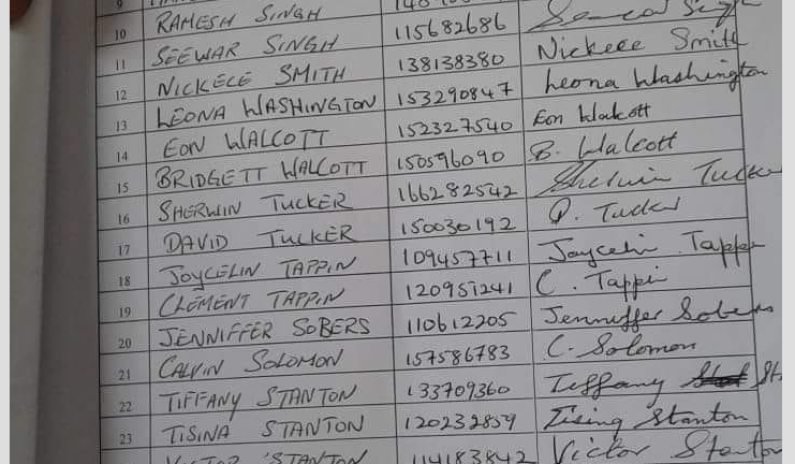 9
10 RAMESH SINGH
11 SEEWAR SINGH 115682686 Singh
12 NICKECE SMITH 138138380 Nickece Smith
13 LEONA WASHINGTON 153290847 Leona Washington
14 EON WALCOTT 152327540 Eon Walcott
15 BRIDGETT WALCOTT 150596090 B. Walcott
16 SHERWIN TUCKER 166282542 Sherwin Tucker
17 DAVID TUCKER 150030192 D. Tucker
18 JOYCELIN TAPPIN 109457711 Joycelin Tappin
19 CLEMENT TAPPIN 120951241 C. Tappi
20 JENNIFFER SOBERS 110612205 Jenniffer Sobers
21 CALVIN SOLOMON 157586783 C. Solomon
22 TIFFANY STANTON 133709360 Tiffany St
23 TISINA STANTON 120232859 Tising Stanton
VICTOR STANTON 114183842 Victor Stanton